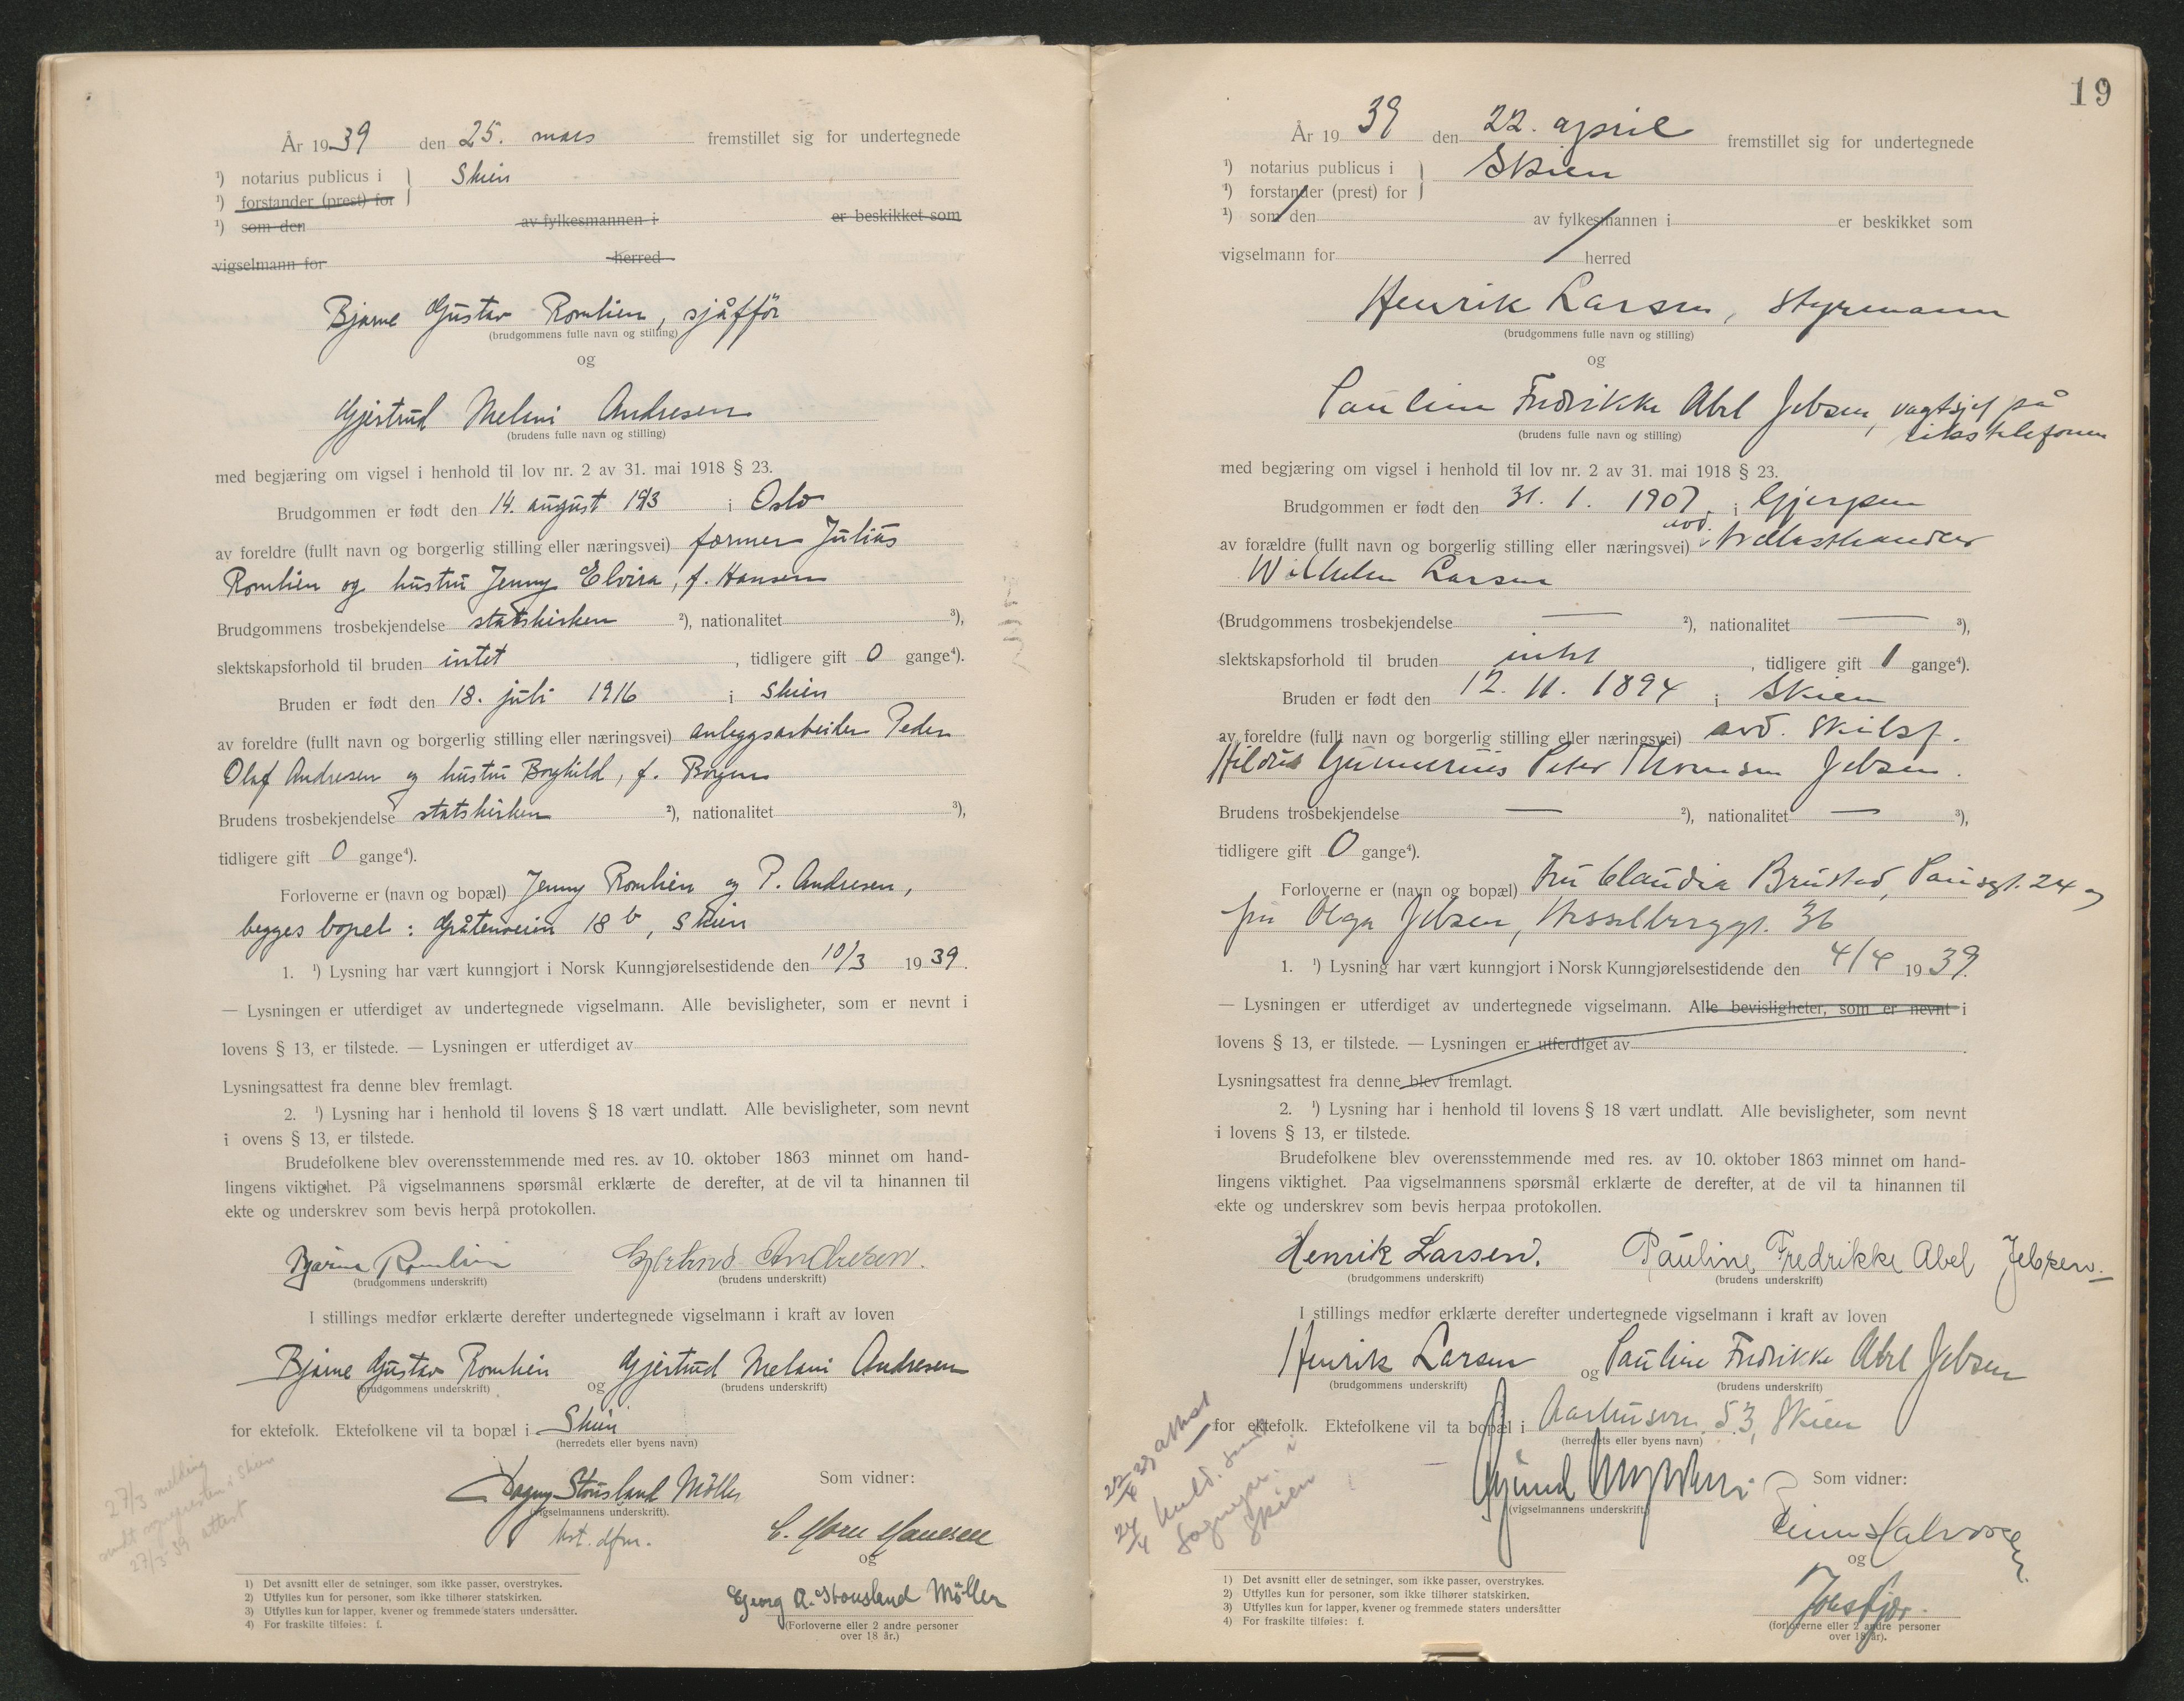 År 1939 den 25. mars fremstillet sig for undertegnede
¹) notarius publicus i } Skien
¹) forstander (prest) for
¹) som den av fylkesmannen i er beskikket som
vigselmann for herred
Bjarne Gustav Romlien, sjåffør
(brudgommens fulle navn og stilling)
og
Gjertrud Melani Andresen
(brudens fulle navn og stilling)
med begjæring om vigsel i henhold til lov nr. 2 av 31. mai 1918 § 23.
Brudgommen er født den 14. august 1913 i Oslo
av foreldre (fullt navn og borgerlig stilling eller næringsvei) former Julius
Romlien og hustru Jenny Elvira, f. Hansen
Brudgommens trosbekjendelse statskirken ²), nationalitet ³),
slektskapsforhold til bruden intet, tidligere gift 0 gange⁴).
Bruden er født den 18. juli 1916 i Skien
av foreldre (fullt navn og borgerlig stilling eller næringsvei) anleggsarbeider Peder
Olaf Andresen og hustru Borghild, f. Borgen
Brudens trosbekjendelse statskirken ²), nationalitet ³),
tidligere gift 0 gange⁴).
Forloverne er (navn og bopæl) Jenny Romlien og P. Andresen,
begges bopel: Gråtenveien 18 b, Skien
1. ¹) Lysning har vært kunngjort i Norsk Kunngjørelsestidende den 10/3 1939.
— Lysningen er utferdiget av undertegnede vigselmann. Alle bevisligheter, som er nevnt i
lovens § 13, er tilstede. — Lysningen er utferdiget av
Lysningsattest fra denne blev fremlagt.
2. ¹) Lysning har i henhold til lovens § 18 vært undlatt. Alle bevisligheter, som nevnt
i ovens § 13, er tilstede.
Brudefolkene blev overensstemmende med res. av 10. oktober 1863 minnet om hand-
lingens viktighet. På vigselmannens spørsmål erklærte de derefter, at de vil ta hinannen til
ekte og underskrev som bevis herpå protokollen.
Bjarne Romlien Gjertrud Andresen.
(brudgommens underskrift) (brudens underskrift)
I stillings medfør erklærte derefter undertegnede vigselmann i kraft av loven
Bjarne Gustav Romlien og Gjertrud Melani Andresen
(brudgommens underskrift) (brudens underskrift)
for ektefolk. Ektefolkene vil ta bopæl i Skien
(herredets eller byens navn)
27/3 melding
sendt sognepresten i Skien
27/3 39 attest
Dagny Stousland Möller
(vigselmannens underskrift).
kst. dfm.
Som vidner:
C. Horn Hanssen
og
Georg A. Stousland Möller
(Forloverne eller 2 andre personer
over 18 år.)
1) Det avsnitt eller de setninger, som ikke passer, overstrykes.
2) Utfylles kun for personer, som ikke tilhører statskirken.
3) Utfylles kun for lapper, kvener og fremmede staters undersåtter.
4) For fraskilte tilføies: f.
19
År 1939 den 22. april fremstillet sig for undertegnede
¹) notarius publicus i } Skien
¹) forstander (prest) for
¹) som den av fylkesmannen i er beskikket som
vigselmann for herred
Henrik Larsen, styrmann
(brudgommens fulle navn og stilling)
og
Pauline Fredrikke Abel Jebsen, vagtsjef på
rikstelefonen
(brudens fulle navn og stilling)
med begjæring om vigsel i henhold til lov nr. 2 av 31. mai 1918 § 23.
Brudgommen er født den 31. 1. 1907 i Gjerpen
av forældre (fullt navn og borgerlig stilling eller næringsvei) avd. trælasthandler
Wilhelm Larsen
(Brudgommens trosbekjendelse — ²), nationalitet — ³),
slektskapsforhold til bruden intet, tidligere gift 1 gange⁴).
Bruden er født den 12. 11. 1894 i Skien
av foreldre (fullt navn og borgerlig stilling eller næringsvei) avd. skibsf.
Hildus Gunnerius Peter Thomsen Jebsen.
Brudens trosbekjendelse — ²), nationalitet — ³),
tidligere gift 0 gange⁴).
Forloverne er (navn og bopæl) Fru Claudia Brusted, Pausgt. 24 og
fru Olga Jebsen, Hesselberggt. 36
1. ¹) Lysning har vært kunngjort i Norsk Kunngjørelsestidende den 4/4 1939.
— Lysningen er utferdiget av undertegnede vigselmann. Alle bevisligheter, som er nevnt i
lovens § 13, er tilstede. — Lysningen er utferdiget av
Lysningsattest fra denne blev fremlagt.
2. ¹) Lysning har i henhold til lovens § 18 vært undlatt. Alle bevisligheter, som nevnt
i lovens § 13, er tilstede.
Brudefolkene blev overensstemmende med res. av 10. oktober 1863 minnet om hand-
lingens viktighet. Paa vigselmannens spørsmål erklærte de derefter, at de vil ta hinannen til
ekte og underskrev som bevis herpaa protokollen.
Henrik Larsen. Pauline Fredrikke Abel Jebsen.
(brudgommens underskrift) (brudens underskrift)
I stillings medfør erklærte derefter undertegnede vigselmann i kraft av loven
Henrik Larsen og Pauline Fredrikke Abel Jebsen
(brudgommens underskrift) (brudens underskrift)
for ektefolk. Ektefolkene vil ta bopæl i Aarhusvn. 53, Skien
(herredets eller byens navn)
22/4 39 attest
24/4 meld. sendt
sognepr. i
Skien
(vigselmannens underskrift)
Som vidner:
Halvorsen
og
(forloverne eller 2 andre personer
over 18 år).
1) Det avsnitt eller de setninger, som ikke passer, overstrykes.
2) Utfylles kun for personer, som ikke tilhører statskirken.
3) Utfylles kun for lapper, kvener og fremmede staters undersåtter
4) For fraskilte tilføies: f.